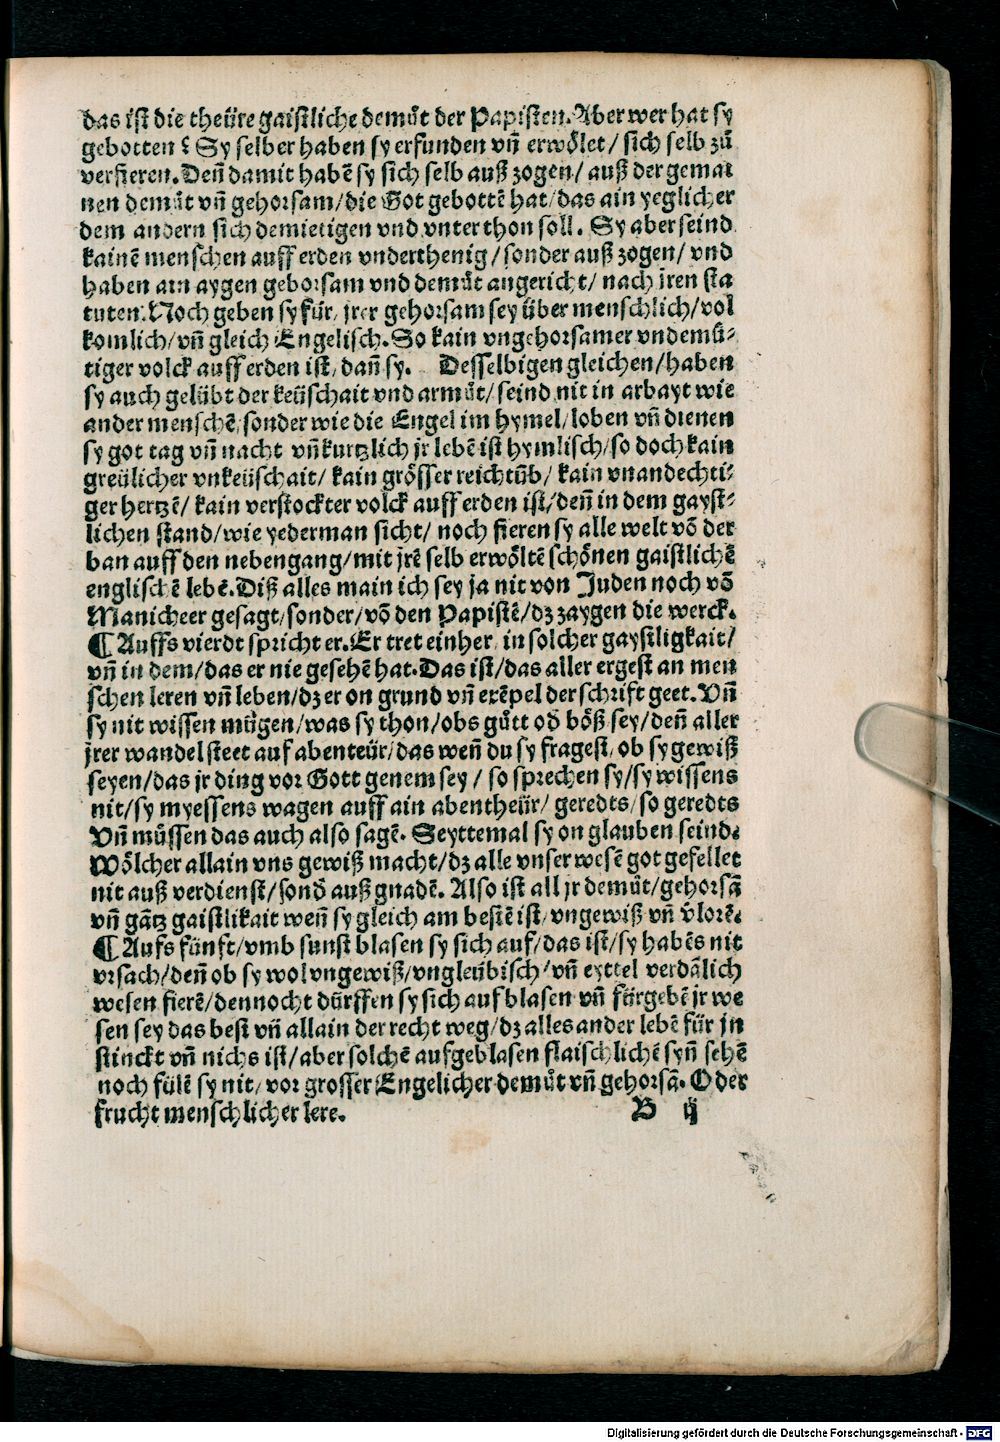 das ist die theüre gaistliche demůt der Papisten. Aber wer hat sy
gebotten? Sy selber haben sy erfunden vñ erwölet/ sich selb zů
verfieren. Deñ damit habẽ sy sich selb auß zogen/ auß der gemai
nen demůt vñ gehorsam/die Got gebottẽ hat/das ain yeglicher
dem andern sich demietigen vnd vnterthon soll. Sy aber seind
kainẽ menschen auff erden vnderthenig/sonder auß zogen/ vnd
haben ain aygen gehorsam vnd demůt angericht/ nach jren sta
tuten. Noch geben sy für, jrer gehorsam sey über menschlich/vol
komlich/vñ gleich Engelisch. So kain vngehorsamer vndemü-
tiger volck auff erden ist, dañ sy. Desselbigen gleichen/haben
sy auch gelübt der keüschait vnd armůt/ seind nit in arbayt wie
ander menschẽ, sonder wie die Engel im hymel/loben vñ dienen
sy got tag vñ nacht vñ kurtzlich jr lebẽ ist hymlisch/so doch kain
greülicher vnkeüschait/ kain grösser reichtũb/ kain vnandechti-
ger hertzẽ/ kain verstockter volck auff erden ist/deñ in dem gayst-
lichen stand/wie yederman sicht/ noch fieren sy alle welt võ der
ban auff den nebengang/mit jrẽ selb erwöltẽ schönen gaistlichẽ
englischẽ lebẽ. Diß alles main ich sey ja nit von Juden noch võ
Manicheer gesagt/sonder/võ den Papistẽ/dz zaygen die werck.
¶ Auffs vierdt spricht er. Er tret einher, in solcher gaystligkait/
vñ in dem/das er nie gesehẽ hat. Das ist/das aller ergest an men
schen leren vñ leben/dz er on grund vñ exẽpel der schrift geet. Vñ
sy nit wissen mügen/was sy thon/obs gůtt oď böß sey/deñ aller
jrer wandel steet auf abenteür/das weñ du sy fragest, ob sy gewiß
seyen/das jr ding vor Gott genem sey/ so sprechen sy/sy wissens
nit/sy myessens wagen auff ain abentheür/ geredts/so geredts
Vñ müssen das auch also sagẽ. Seyttemal sy on glauben seind.
Wölcher allain vns gewiß macht/dz alle vnser wesẽ got gefellet
nit auß verdienst/sonď auß gnadẽ. Also ist all jr demůt/gehorsã
vñ gãtz gaistlikait weñ sy gleich am bestẽ ist, vngewiß vñ v̉lorẽ.
¶ Aufs fünft/vmb sunst blasen sy sich auf/das ist/sy habẽs nit
vrsach/deñ ob sy wol vngewiß/vngleübisch/vñ eyttel verdãlich
wesen fierẽ/dennocht dürffen sy sich auf blasen vñ fürgebẽ jr we
sen sey das best vñ allain der recht weg/dz alles ander lebẽ für jn
stinckt vñ nichs ist/aber solchẽ aufgeblasen flaischlichẽ syñ sehẽ
noch fülẽ sy nit, vor grosser Engelicher demůt vñ gehorsã. Oder
frucht menschlicher lere.
B ij
Digitalisierung gefördert durch die Deutsche Forschungsgemeinschaft - DFG